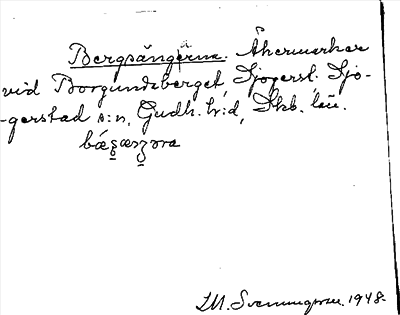 Bergsängarna. Åkermarker
vid Borgundsberget, Sjögerst. Sjö-
gerstad s:n, Gudh. h:d, Skb. län.
M. Svenningson. 1948.